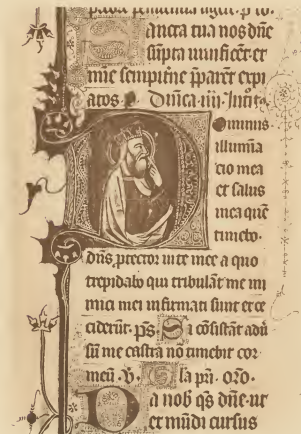 ancta tua nos dñe
sūpta viuificēt et
mīe sempitñe p̄parēt expi
atos. Dñica iiii Introit9
Dominus
illumina
cio mea
et salus
mea quē
timebo.
dñs ꝓtector uite mee a quo
trepidabo qui tribulāt me ini
mici mei infirmati sunt et ce
ciderūt. p̄s. Si cōsistāt adū
sū me castra nō timebit cor
meū. V. Gla pr̄i. or̄o.
Da nob̄ q̄s dñe ut
et mūdi cursus